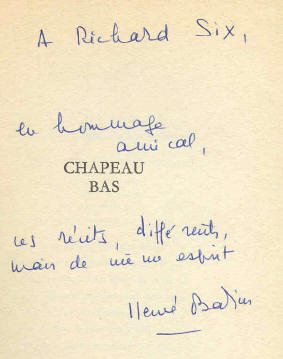 A Richard Six,
en hommage
amical,
CHAPEAU
BAS
ces récits, différents,
mais de même esprit
Hervé Bazin